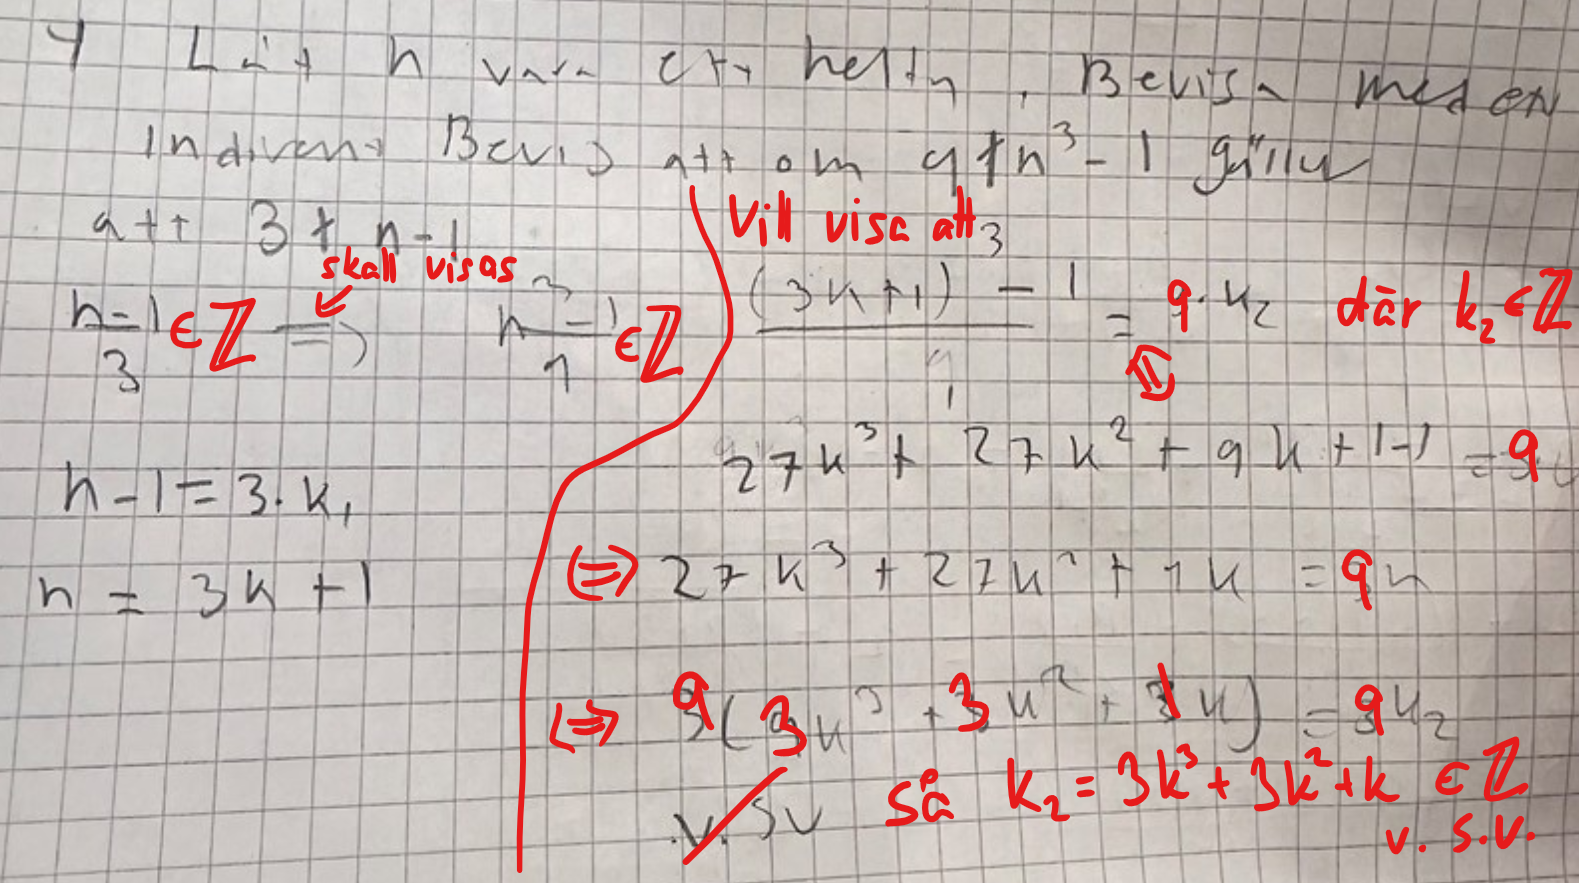 4 Låt n vara ett heltal. Bevisa med ett
Indirekt Bevis att om 9 ∤ n³ - 1 gäller
att 3 ∤ n-1
skall visas
(n-1)/3 ∈ ℤ ⇒ (n³-1)/9 ∈ ℤ
n-1 = 3·k₁
n = 3k+1
Vill visa att
((3k+1)³ - 1)/9 = 9·k₂ där k₂ ∈ ℤ
⇕
27k³ + 27k² + 9k + 1-1 = 9
⇔ 27k³ + 27k² + 9k = 9k
⇔ 9(3k³ + 3k² + 1k) = 9k₂
v.sv så k₂ = 3k³ + 3k² + k ∈ ℤ
v. s.v.